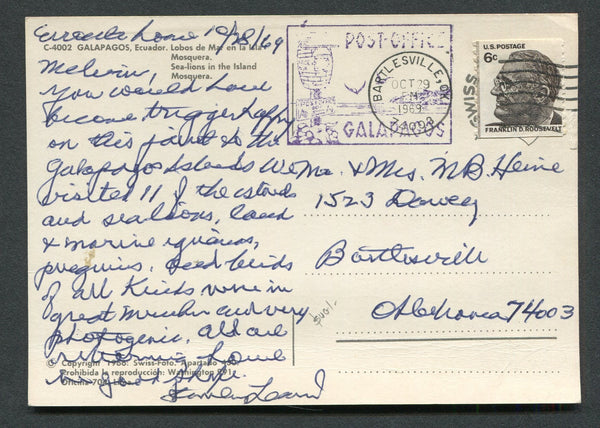 Enroute home 10/28/69
C-4002 GALAPAGOS, Ecuador. Lobos de Mar en la Isla
Mosquera.
Sea-lions in the Island
Mosquera.
Melvin,
You would have
become trigger happy
on this jaunt to the
Galapagos Islands We
visited 11 of the islands
and sea lions, land
& marine iguanas,
penguins, and birds
of all kinds were in
great number and very
photogenic. All are
returning home
in good shape.
© Copyright 1966: Swiss-Foto. Apartado
Prohibida la reproducción: Washington
Oficina 70
POST-OFFICE
GALAPAGOS
BARTLESVILLE, OK
OCT 29
PM
1969
74003
U.S. POSTAGE
6c
FRANKLIN D. ROOSEVELT
SWISS
Mr. & Mrs. M B. Heine
1523 Dewey
Bartlesville
Oklahoma 74003